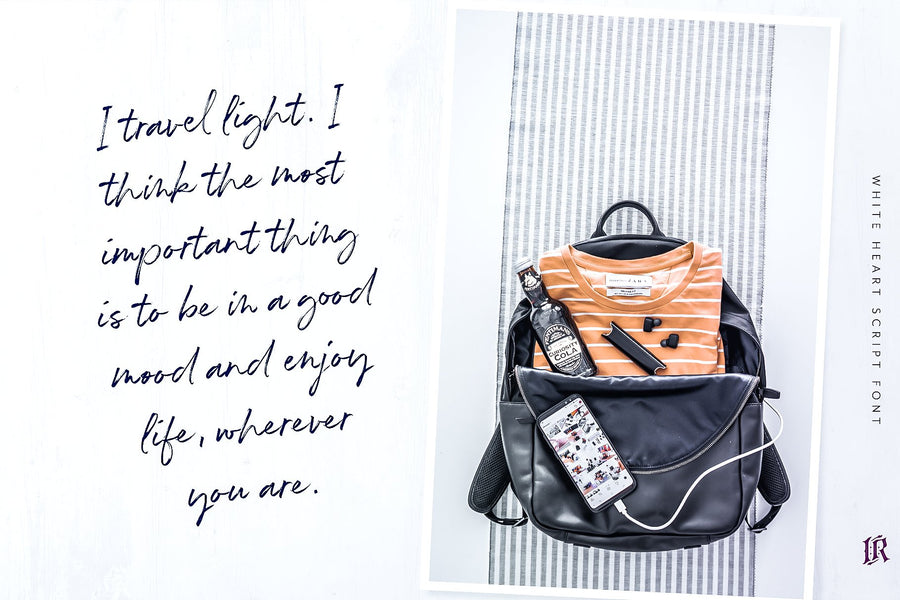 I travel light. I
think the most
important thing
is to be in a good
mood and enjoy
life, wherever
you are.
ZARA
FENTIMANS
CURIOSITY
COLA
WHITE HEART SCRIPT FONT